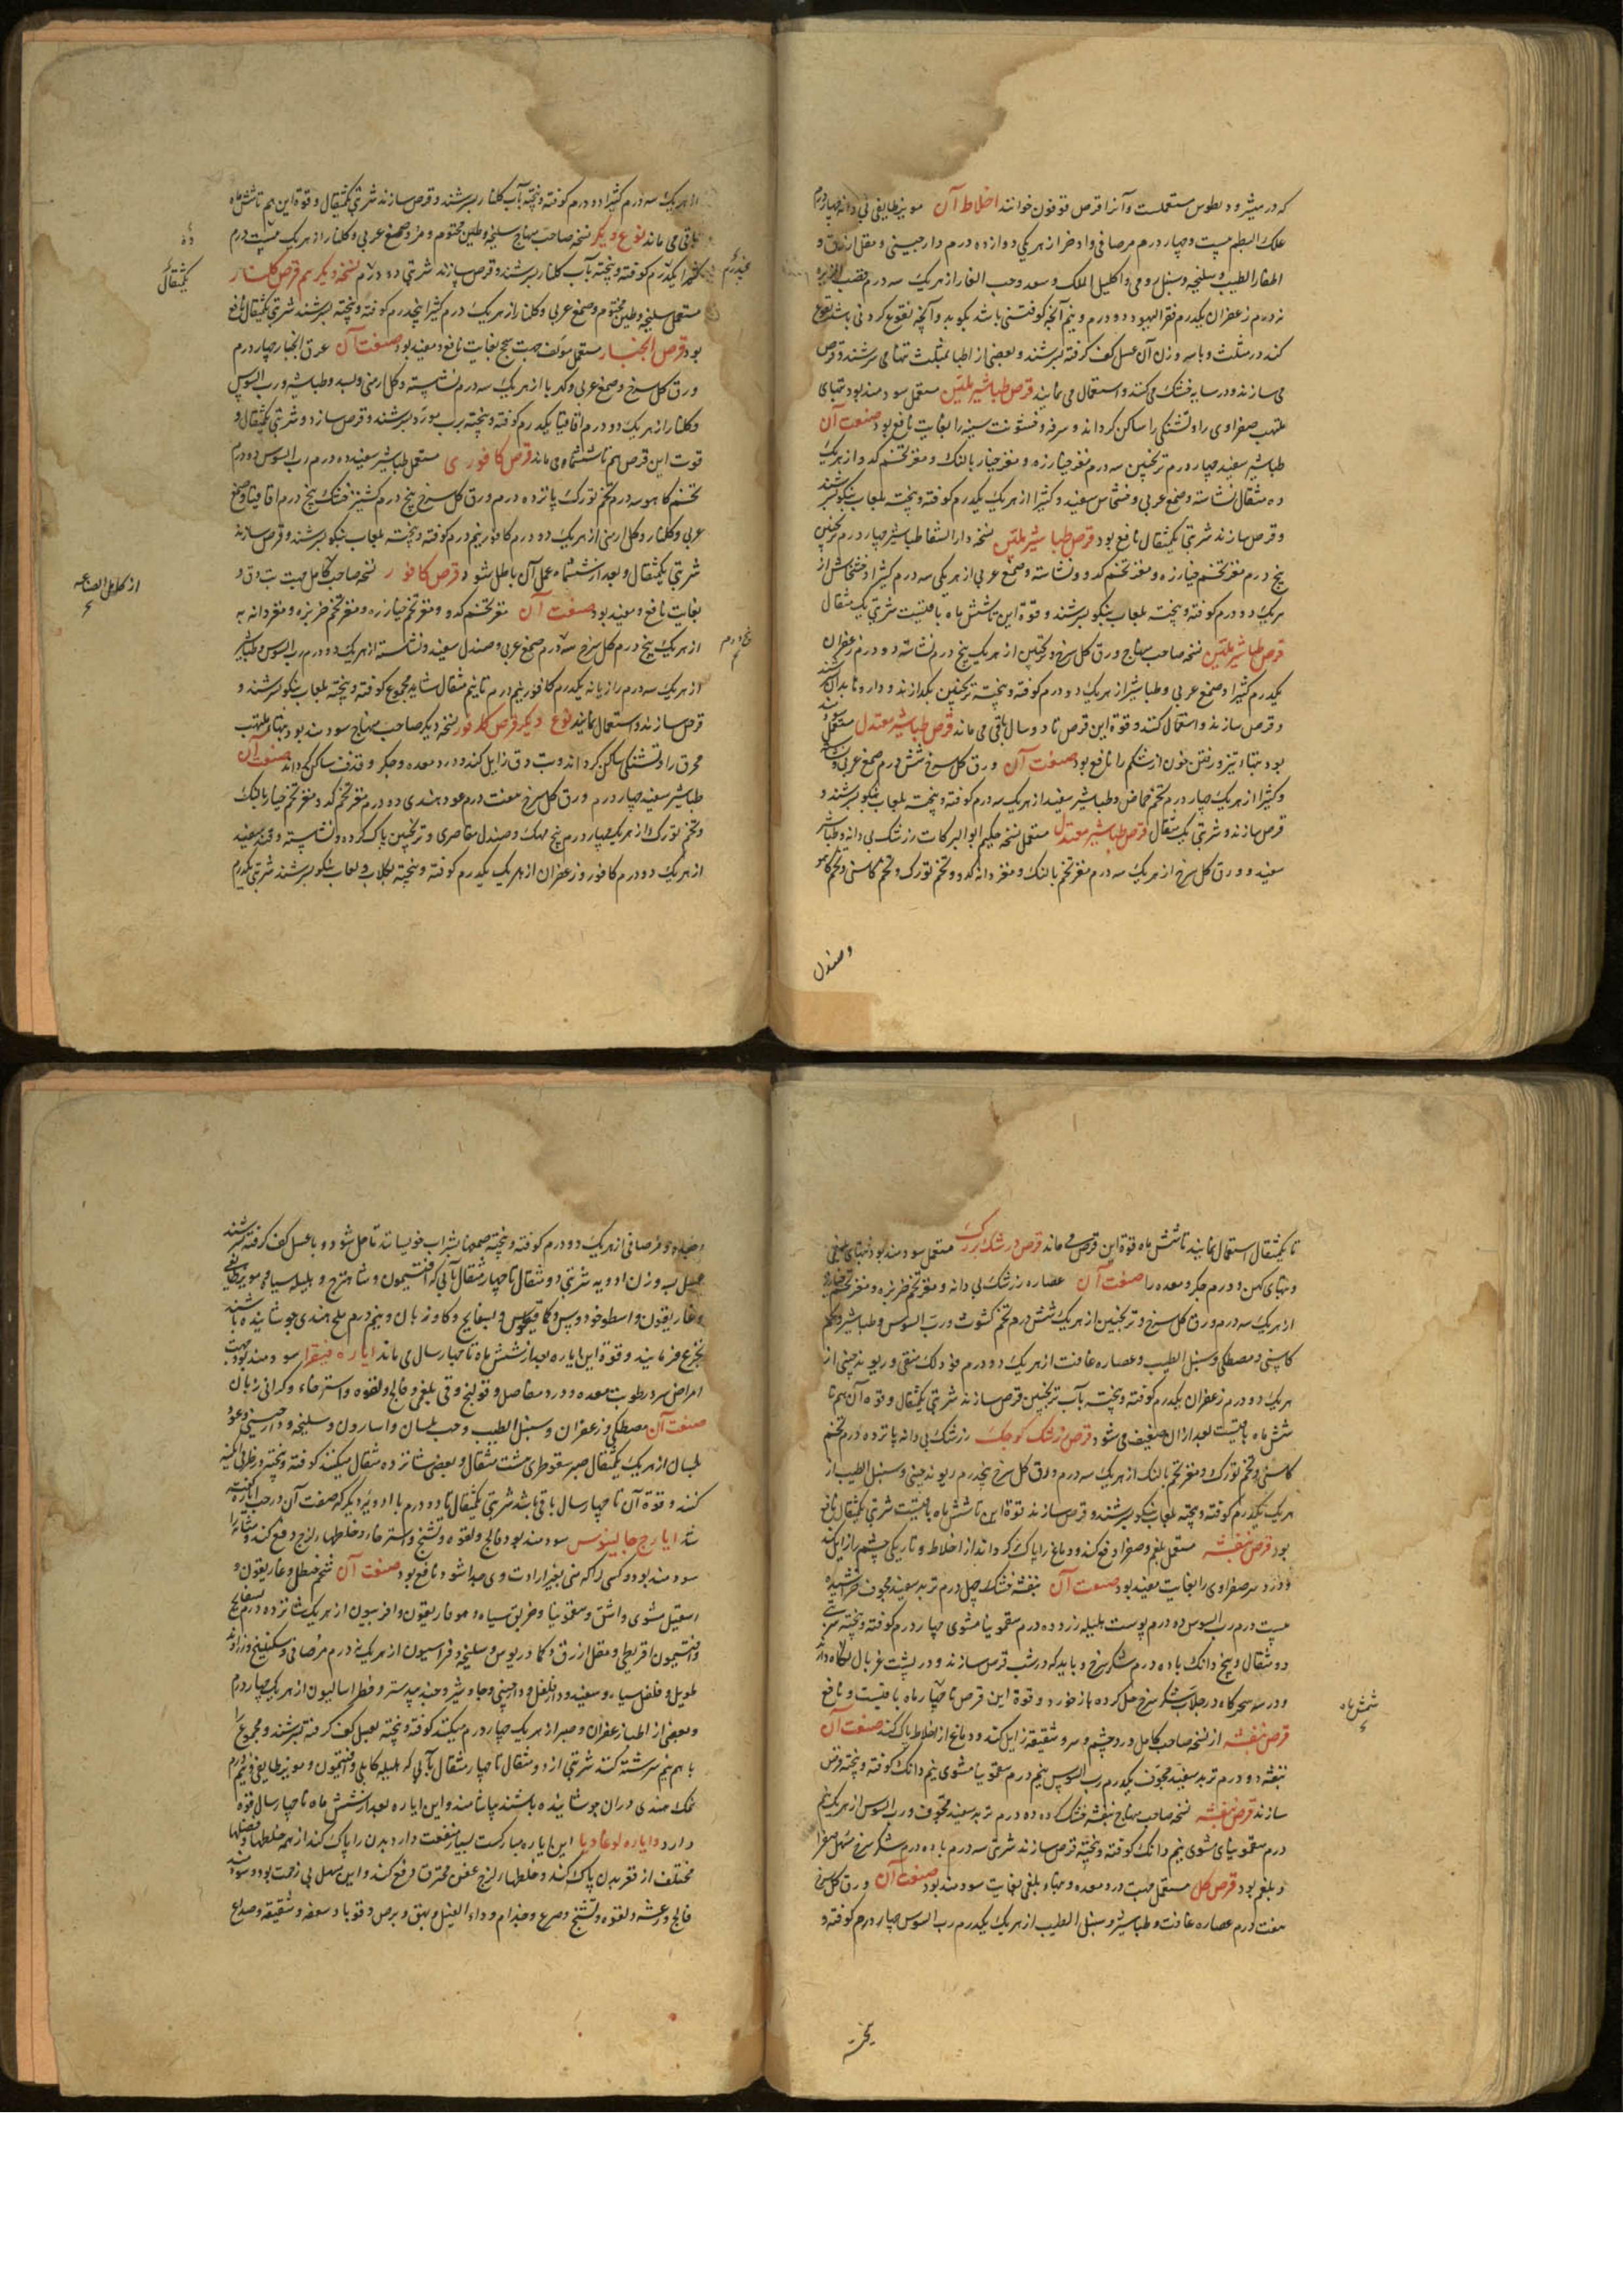 که در مثرودیطوس مستعملست و آنرا قرص قوفون خوانند اخلاط آن مویز طایفی بی دانه چهار درم
علک البطم بیست و چهار درم مر صافی و اذخر از هر یکی دوازده درم دارچینی و مقل ازرق و
اظفار الطیب و سلیخه و سنبل رومی و اکلیل الملک و سعد و حب الغار از هر یک سه درم قصب الذریره
نه درم زعفران یکدرم فقر الیهود دو درم و نیم آنچه کوفتنی باشد بکوبد و آنچه نقوع کردنی باشد نقوع
کند در مثلث و با سه وزن آن عسل کف گرفته بسرشند و بعضی از اطبا بمثلث تنها می سرشند و قرص
می سازند و در سایه خشک می کنند و استعمال می نمایند قرص طباشیر ملین مستعمل سودمند بود تبهای
ملتهب صفراوی را و تشنگی را ساکن گرداند و سرفه و خشونت سینه را بغایت نافع بود صنعت آن
طباشیر سفید چهار درم ترنجبین سه درم مغز خیارزه و مغز خیار بالنک و مغز تخم کدو از هر یک
ده مثقال نشاسته و صمغ عربی و خشخاش سفید و کثیرا از هر یک یکدرم کوفته و بیخته بلعاب بنکو بسرشند
و قرص سازند شربتی یکمثقال نافع بود قرص طباشیر ملین نسخه دارالشفا طباشیر چهار درم ترنجبین
پنج درم مغز تخم خیارزه و مغز تخم کدو و نشاسته و صمغ عربی از هر یکی سه درم کثیرا و خشخاش از
هر یک دو درم کوفته و بیخته بلعاب بنکو بسرشند و قوة این تا شش ماه باقیست شربتی یک مثقال
قرص طباشیر ملین نسخه صاحب منهاج ورق کل سرخ و ترنجبین از هر یک پنج درم نشاسته دو درم زعفران
یکدرم کثیرا و صمغ عربی و طباشیر از هر یک دو درم کوفته و بیخته ترنجبین بگدازند و داروها بدان بسرشند
و قرص سازند و استعمال کنند و قوة این قرص تا دو سال باقی می ماند قرص طباشیر معتدل مستعمل
بود تبهاء تیز و رفتن خون از شکم را نافع بود صنعت آن ورق کل سرخ شش درم صمغ عربی و نشاسته
و کثیرا از هر یک چهار درم تخم حماض و طباشیر سفید از هر یک سه درم کوفته و بیخته بلعاب بنکو بسرشند و
قرص سازند و شربتی یک مثقال قرص طباشیر معتدل مستعمل نسخه حکیم ابوالبرکات زرشک بی دانه و طباشیر
سفید و ورق کل سرخ از هر یک سه درم مغز تخم بالنک و مغز دانه کدو و تخم تورک و تخم کاسنی و تخم کاهو
و صندل
از هر یک سه درم کثیرا دو درم کوفته و بیخته بآب کلنار بسرشند و قرص سازند شربتی یکمثقال و قوة این هم تا شش ماه
باقی می ماند نوع دیگر نسخه صاحب منهاج سلیخه و طین مختوم و مر و صمغ عربی و کلنار از هر یک بیست درم
کثیرا یکدرم کوفته و بیخته بآب کلنار بسرشند و قرص سازند شربتی دو درم نسخه دیگر هم قرص کلنار
مستعمل سلیخه و طین مختوم و صمغ عربی و کلنار از هر یک درم کثیرا پنجدرم کوفته و بیخته بسرشند شربتی یکمثقال نافع
بود قرص الجلنار مستعمل مؤلف جهت سحج بغایت نافع و مفید بود صنعت آن عرق انجبار چهار درم
ورق کل سرخ و صمغ عربی و کهربا از هر یک سه درم نشاسته و کل ارمنی و بسد و طباشیر و رب السوس
و کلنار از هر یک دو درم اقاقیا یکدرم کوفته و بیخته برب مورد بسرشند و قرص سازد و شربتی یکمثقال و
قوت این قرص هم تا ششماه می ماند قرص کافوری مستعمل طباشیر سفید ده درم رب السوس دو درم
تخم کاهو سه درم تخم تورک پانزده درم ورق کل سرخ پنج درم کشنیز خشک پنج درم اقاقیا و صمغ
عربی و کلنار و کل ارمنی از هر یک دو درم کافور نیم درم کوفته و بیخته بلعاب بنکو بسرشند و قرص سازند
شربتی یکمثقال و بعد از ششماه عمل آن باطل شود قرص کافور نسخه صاحب کامل جهت تب دق
بغایت نافع و مفید بود صنعت آن مغز تخم کدو و مغز تخم خیارزه و مغز تخم خربزه و مغز دانه به
از هر یک پنج درم کل سرخ سه درم صمغ عربی و صندل سفید و نشاسته از هر یک دو درم رب السوس و طباشیر
از هر یک سه درم رازیانه یکدرم کافور نیم درم تا نیم مثقال شاید مجموع کوفته و بیخته بلعاب بنکو بسرشند و
قرص سازند و استعمال نمایند نوع دیگر قرص کافور نسخه دیگر صاحب منهاج سودمند بود تبهاء ملتهب
محرق را و تشنگی ساکن گرداند و تب دق زایل کند و درد معده و جگر و قذف ساکن گرداند صنعت آن
طباشیر سفید چهار درم ورق کل سرخ هفت درم عود هندی ده درم مغز تخم کدو مغز تخم خیار بالنک
و تخم تورک از هر یک چهار درم بیخ مهک و صندل مقاصری و ترنجبین پاک کرده و نشاسته و قند سفید
از هر یک دو درم کافور و زعفران از هر یک یکدرم کوفته و بیخته بکلاب و لعاب بنکو بسرشند شربتی یکدرم
پنجدرم
یکمثقال
از کامل الصناعه
پنج درم
تا یکمثقال استعمال نمایند تا شش ماه قوة این قرص می ماند قرص زرشک بزرگ مستعمل سودمند بود تبهای بلغمی
و تبهای کهن و ورم جگر و معده را صنعت آن عصاره زرشک بی دانه و مغز تخم خربزه و مغز تخم خیارزه
از هر یک سه درم ورق کل سرخ و ترنجبین از هر یک شش درم تخم کشوث و رب السوس و طباشیر و تخم
کاسنی و مصطکی و سنبل الطیب و عصاره غافت از هر یک دو درم فوه و لک منقی و ریوند چینی از
هر یک دو درم زعفران یکدرم کوفته و بیخته بآب ترنجبین قرص سازند شربتی یکمثقال و قوه آن هم تا
شش ماه باقیست بعد از آن ضعیف می شود قرص زرشک کوچک زرشک بی دانه پانزده درم تخم
کاسنی و تخم تورک و مغز تخم بالنک از هر یک سه درم ورق کل سرخ پنجدرم ریوند چینی و سنبل الطیب از
هر یک یکدرم کوفته و بیخته بلعاب بنکو بسرشند و قرص سازند قوة این تا شش ماه باقیست شربتی یکمثقال نافع
بود قرص بنفشه مستعمل بلغم و صفرا دفع کند و دماغ را پاک گرداند از اخلاط و تاریکی چشم را زایل کند
و درد سر صفراوی را بغایت مفید بود صنعت آن بنفشه خشک چهل درم تربد سفید مجوف خراشیده
بیست درم رب السوس ده درم پوست هلیله زرد ده درم سقمونیا مشوی چهار درم کوفته و بیخته شربتی
دو مثقال و پنج دانک با ده درم شکر سرخ و باید که در شب قرص سازند و در پشت غربال نگاه دارند
و در سحرگاه در جلاب شکر سرخ حل کرده باز خورد و قوة این قرص تا چهار ماه باقیست و نافع
قرص بنفشه از نسخه صاحب کامل درد چشم و سر و شقیقه زایل کند و دماغ از اخلاط پاک کند صنعت آن
بنفشه دو درم تربد سفید مجوف یکدرم رب السوس نیم درم سقمونیا مشوی نیم دانک کوفته و بیخته قرص
سازند قرص بنفشه نسخه صاحب منهاج بنفشه خشک ده درم تربد سفید مجوف و رب السوس از هر یک نیم
درم سقمونیای مشوی نیم دانک کوفته و بیخته قرص سازند شربتی سه درم با ده درم شکر سرخ مسهل صفرا
و بلغم بود قرص کل مستعمل جهت درد معده و تبهاء بلغمی بغایت سودمند بود صنعت آن ورق کل سرخ
هفت درم عصاره غافت و طباشیر و سنبل الطیب از هر یک یکدرم رب السوس چهار درم کوفته و
بیخته
شش ماه
و مر صافی از هر یک دو درم کوفته و بیخته صمغها بشراب خویسانند تا حل شود و با عسل کف گرفته بسرشند
عسل سه وزن ادویه شربتی دو مثقال تا چهار مثقال بآبی که افتیمون و شاهترج و هلیله سیاه و مویز طایفی
و غاریقون و اسطوخودوس و بسفایج و کاوزبان و نیم درم ملح هندی جوشانیده باشند
تجرع فرمایند و قوة این ایاره بعد از شش ماه تا چهار سال می ماند ایاره فیقرا سودمند بود جهت
امراض سر و رطوبت معده و درد مفاصل و قولنج و قی بلغمی و فالج و لقوه و استرخاء و گرانی زبان
صنعت آن مصطکی و زعفران و سنبل الطیب و حب بلسان و اسارون و سلیخه و دارچینی و عود
بلسان از هر یک یکمثقال صبر سقوطری هشت مثقال و بعضی شانزده مثقال میکنند کوفته و بیخته در ظرفی آبگینه
کنند و قوة آن تا چهار سال باقی باشد شربتی یکمثقال تا دو درم با ادویه دیگر که صفت آن در حب گفته
شد ایارج جالینوس سودمند بود فالج و لقوه و تشنج و استرخاء و خلطهاء لزج دفع کند و مثانه را
سودمند بود و کسی را که منی بغیر ارادت وی جدا شود نافع بود صنعت آن شحم حنظل و غاریقون و
اسقیل مشوی و اشق و سقمونیا و خربق سیاه و هوفاریقون و افربیون از هر یک شانزده درم بسفایج
و افتیمون اقریطی و مقل ازرق و کمادریوس و سلیخه و فراسیون از هر یک نه درم مر صافی و سکبینج و زراوند
طویل و فلفل سیاه و سفید و دارفلفل و دارچینی و جاوشیر و جندبیدستر و فطراسالیون از هر یک چهار درم
و بعضی از اطبا زعفران و صبر از هر یک چهار درم میکنند کوفته و بیخته بعسل کف گرفته بسرشند و مجموع را
با هم نیم سرشته کنند شربتی از دو مثقال تا چهار مثقال بآبی که هلیله کابلی و افتیمون و مویز طایفی و نیم درم
نمک هندی در آن جوشانیده باشند بیاشامند و این ایاره بعد از شش ماه تا چهار سال قوة
دارد و ایاره لوغادیا این ایاره مبارکست بسیار منفعت دارد بدن را پاک کند از همه خلطها و فضلها
مختلف از قعر بدن پاک کند و خلطهاء لزج عفن محترق دفع کند و این مسهل بی زحمت بود و سودمند
فالج و رعشه و لقوه و تشنج و صرع و جذام و داء الفیل و بهق و برص و قوبا و سعفه و شقیقه و صداع